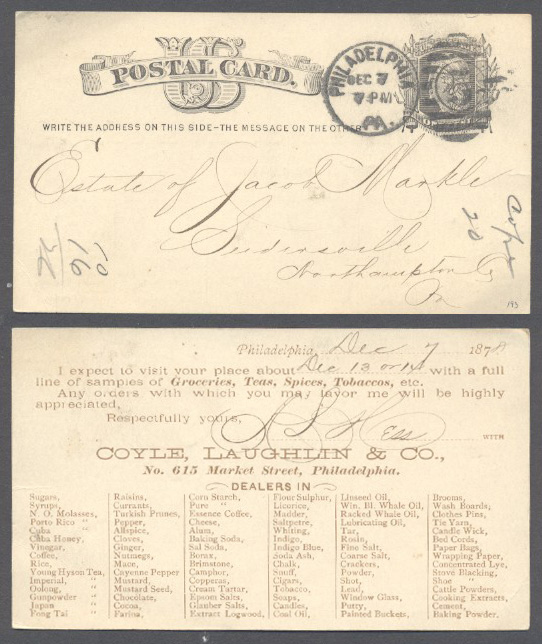 POSTAL CARD.
US
PHILADELPHIA
DEC 7
7 PM
PA.
WRITE THE ADDRESS ON THIS SIDE-THE MESSAGE ON THE OTHER
Estate of Jacob Markle
Seidersville
Northampton Co
Pa
20
193
Philadelphia, Dec 7 1878
I expect to visit your place about Dec 13 or 14 with a full
line of samples of Groceries, Teas, Spices, Tobaccos, etc.
Any orders with which you may favor me will be highly
appreciated,
Respectfully yours,
A S Hess
WITH
COYLE, LAUGHLIN & CO.,
No. 615 Market Street, Philadelphia.
DEALERS IN
Sugars,
Syrups,
N. O. Molasses,
Porto Rico "
Cuba "
Cuba Honey,
Vinegar,
Coffee,
Rice,
Young Hyson Tea,
Imperial, "
Oolong, "
Gunpowder "
Japan "
Fong Tai "
Raisins,
Currants,
Turkish Prunes,
Pepper,
Allspice,
Cloves,
Ginger,
Nutmegs,
Mace,
Cayenne Pepper
Mustard,
Mustard Seed,
Chocolate,
Cocoa,
Farina,
Corn Starch,
Pure "
Essence Coffee,
Cheese,
Alum,
Baking Soda,
Sal Soda,
Borax,
Brimstone,
Camphor,
Copperas,
Cream Tartar,
Epsom Salts,
Glauber Salts,
Extract Logwood,
Flour Sulphur,
Licorice,
Madder,
Saltpetre,
Whiting,
Indigo,
Indigo Blue,
Soda Ash,
Chalk,
Snuff,
Cigars,
Tobacco,
Soaps,
Candles,
Coal Oil,
Linseed Oil,
Win. Bl. Whale Oil,
Racked Whale Oil,
Lubricating Oil,
Tar,
Rosin,
Fine Salt,
Coarse Salt,
Crackers,
Powder,
Shot,
Lead,
Window Glass,
Putty,
Painted Buckets,
Brooms,
Wash Boards,
Clothes Pins,
Tie Yarn,
Candle Wick,
Bed Cords,
Paper Bags,
Wrapping Paper,
Concentrated Lye,
Stove Blacking,
Shoe "
Cattle Powders,
Cooking Extracts,
Cement,
Baking Powder.